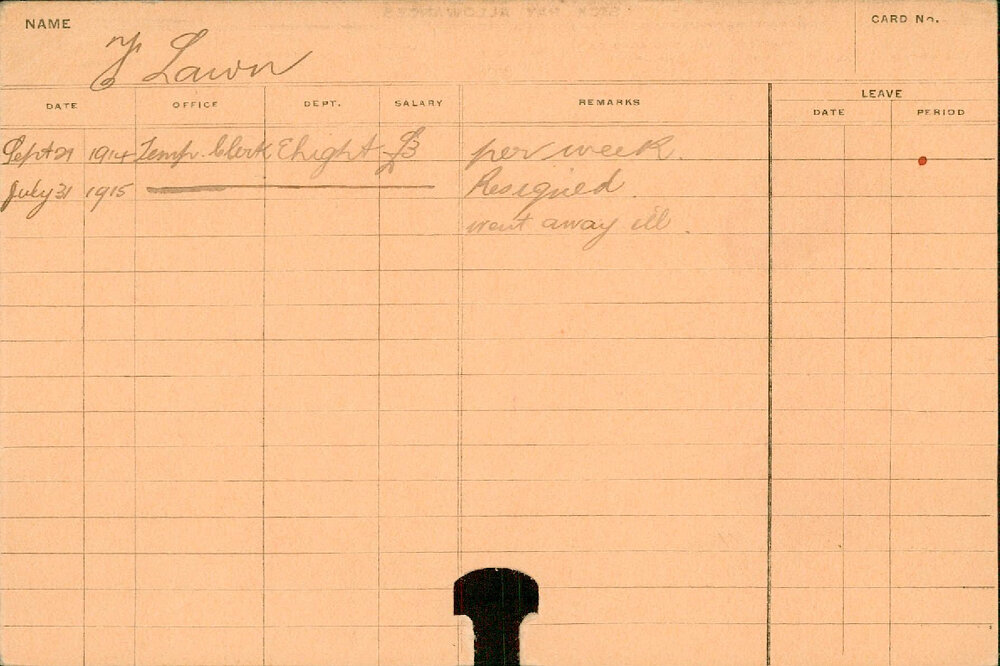 NAME
F Lawn
CARD No.
DATE OFFICE DEPT. SALARY REMARKS LEAVE
DATE PERIOD
Sept 21 1914 Temp. Clerk Elight £3 per week.
July 31 1915 Resigned.
went away ill.